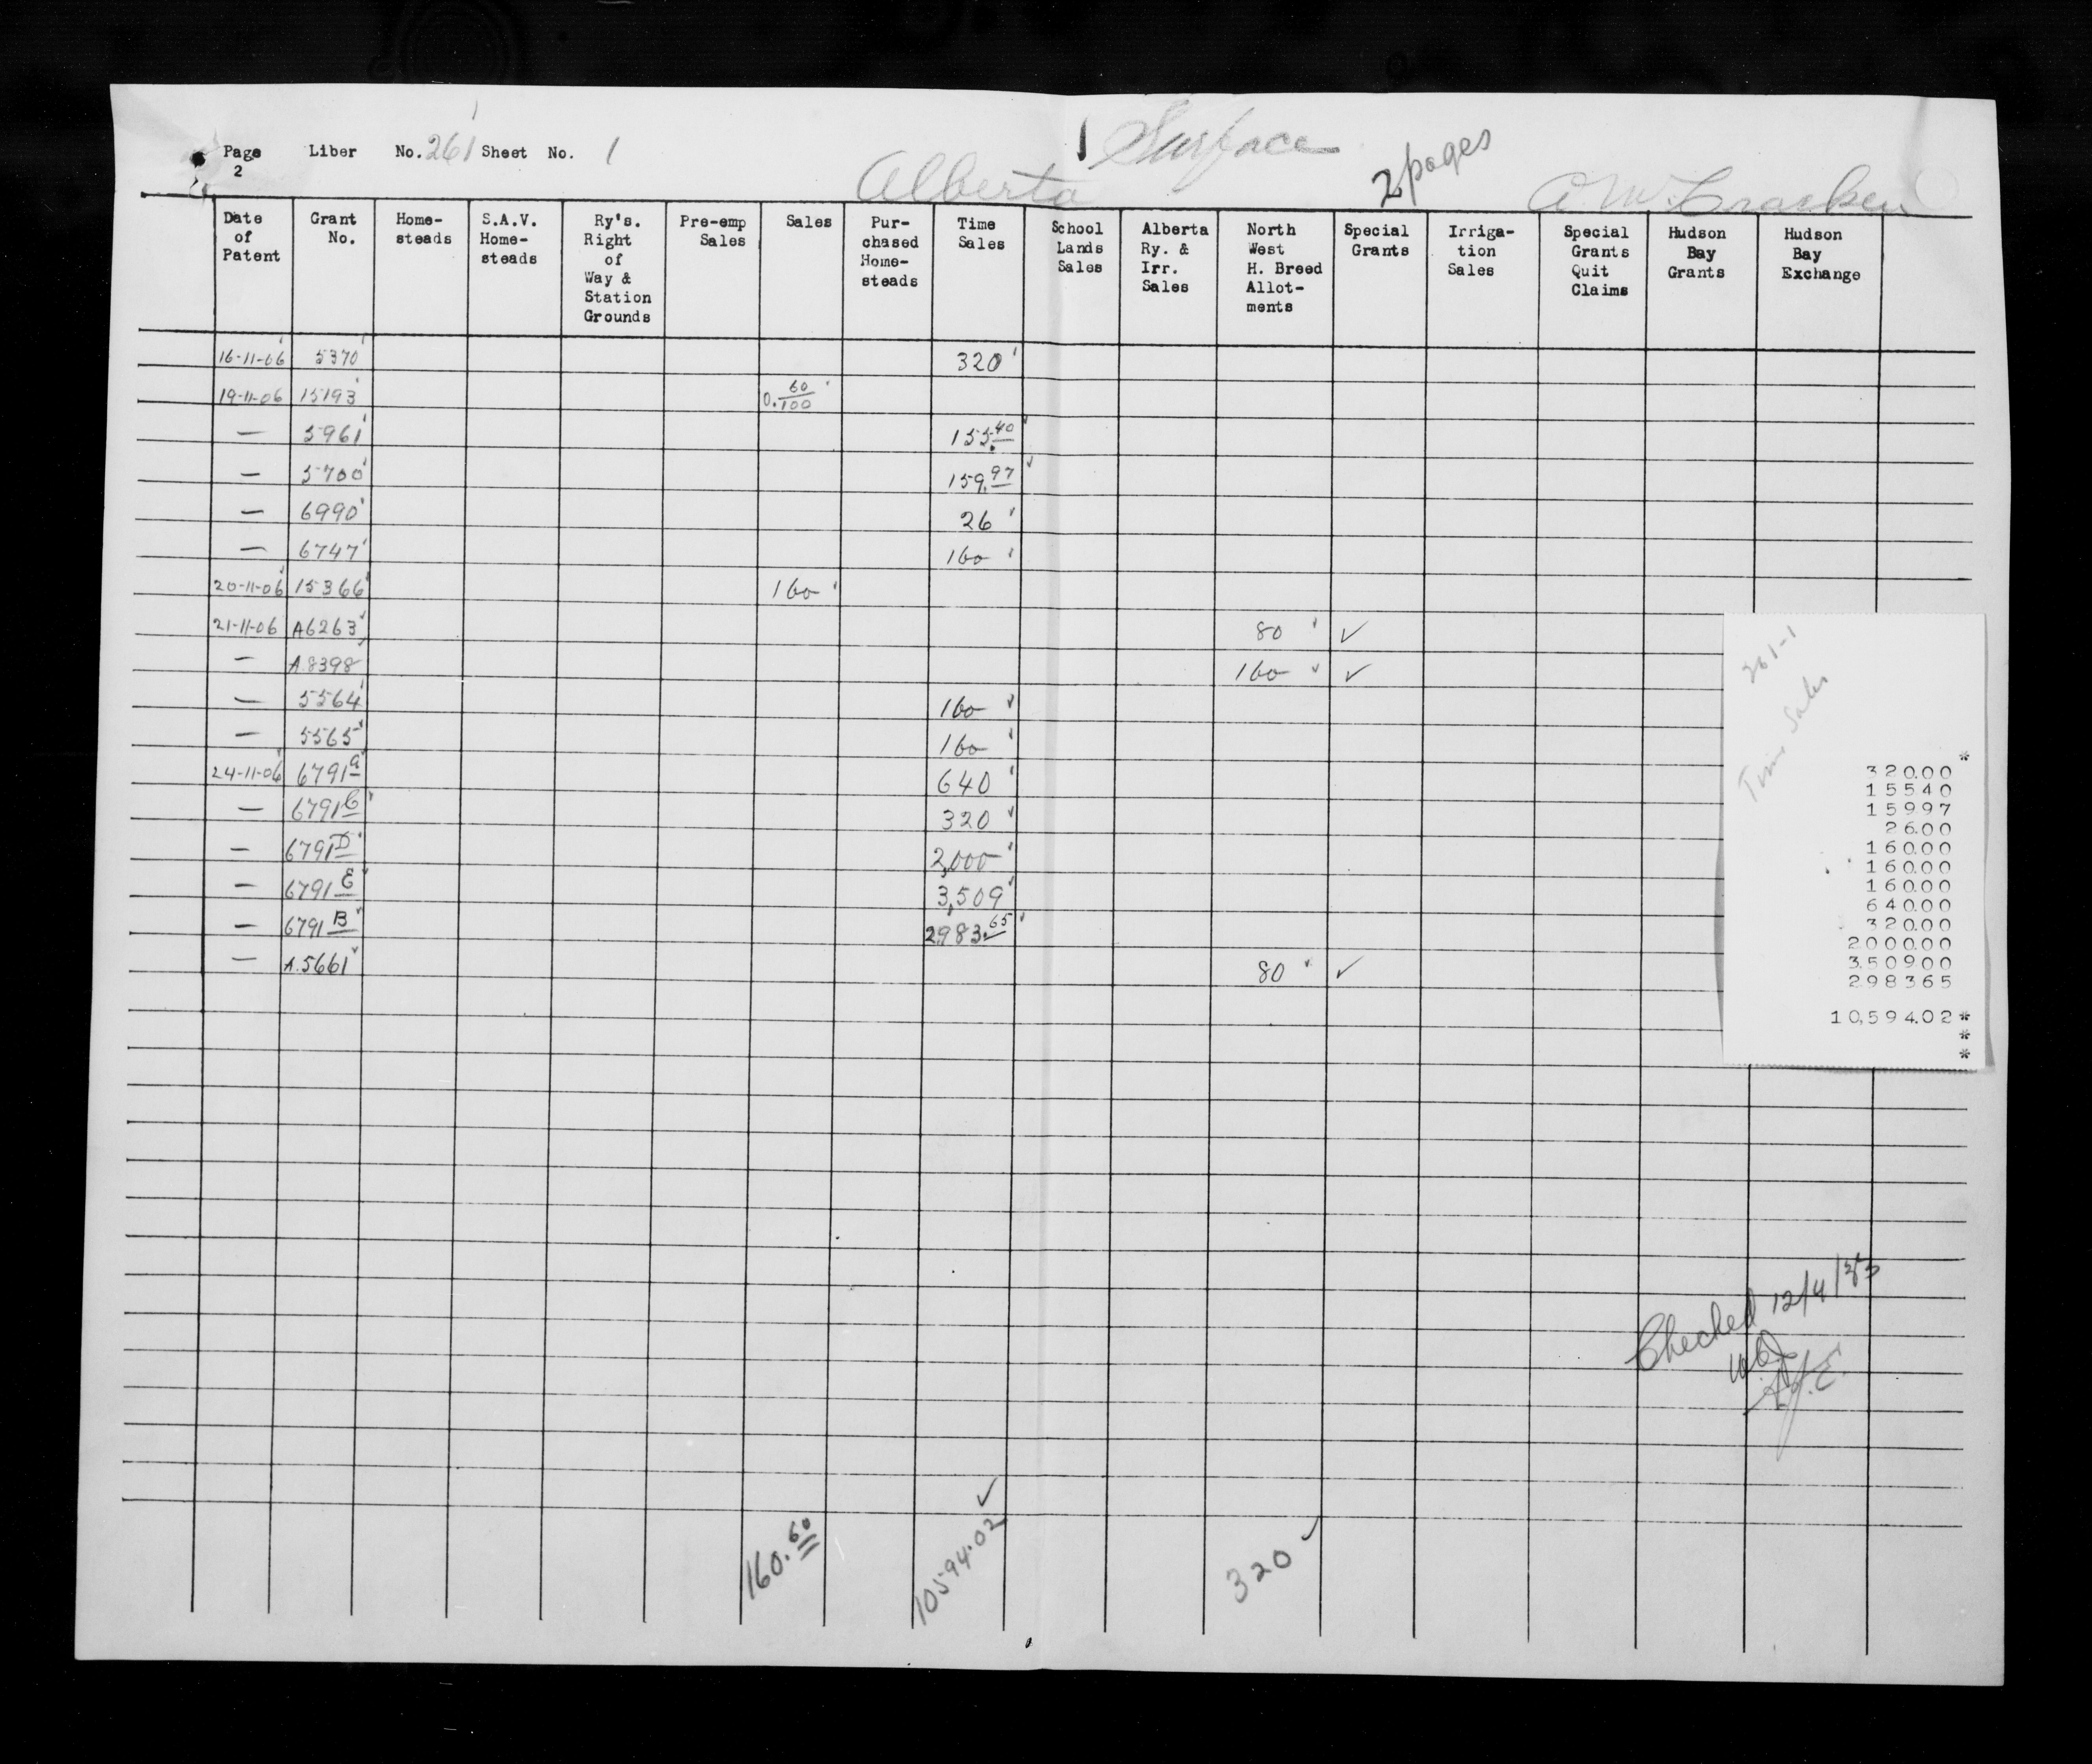 1 Surface
Page 2 Liber No. 261 Sheet No. 1
Alberta
2 pages
A McCracken
Date of Patent | Grant No. | Home-steads | S.A.V. Home-steads | Ry's. Right of Way & Station Grounds | Pre-emp Sales | Sales | Pur-chased Home-steads | Time Sales | School Lands Sales | Alberta Ry. & Irr. Sales | North West H. Breed Allot-ments | Special Grants | Irriga-tion Sales | Special Grants Quit Claims | Hudson Bay Grants | Hudson Bay Exchange
16-11-06 5370 320
19-11-06 15193 0.60/100
— 5961 155.40
— 5700 159.97
— 6990 26
— 6747 160
20-11-06 15366 160
21-11-06 A6263 80 ✓
— A.8398 160 ✓
— 5564 160
— 5565 160
24-11-06 6791a 640
— 6791C 320
— 6791D 2,000
— 6791E 3,509
— 6791B 2983.65
— A.5661 80 ✓
261-1
Time Sales
*
320.00
155.40
159.97
26.00
160.00
160.00
160.00
640.00
320.00
2000.00
3,509.00
2983.65
10,594.02*
*
*
Checked 12/4/
160.60
10594.02 ✓
320 ✓